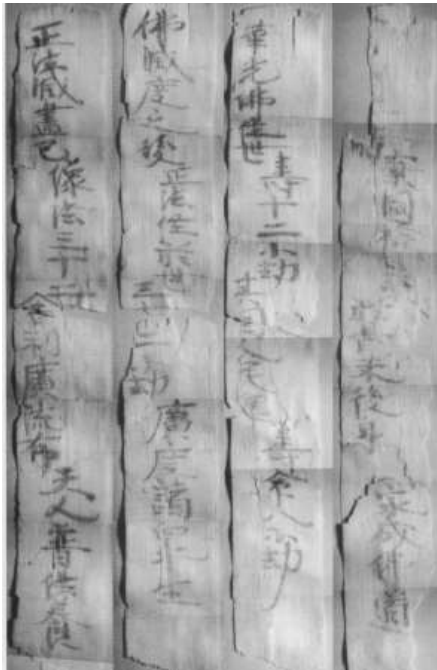 棄國捨末後身成佛道
華光佛住世壽十二小劫其國人民壽命八小劫
佛滅度之後正法住於世三十二劫廣度諸眾生
正法滅盡已像法三十二舍利廣流布天人普供養